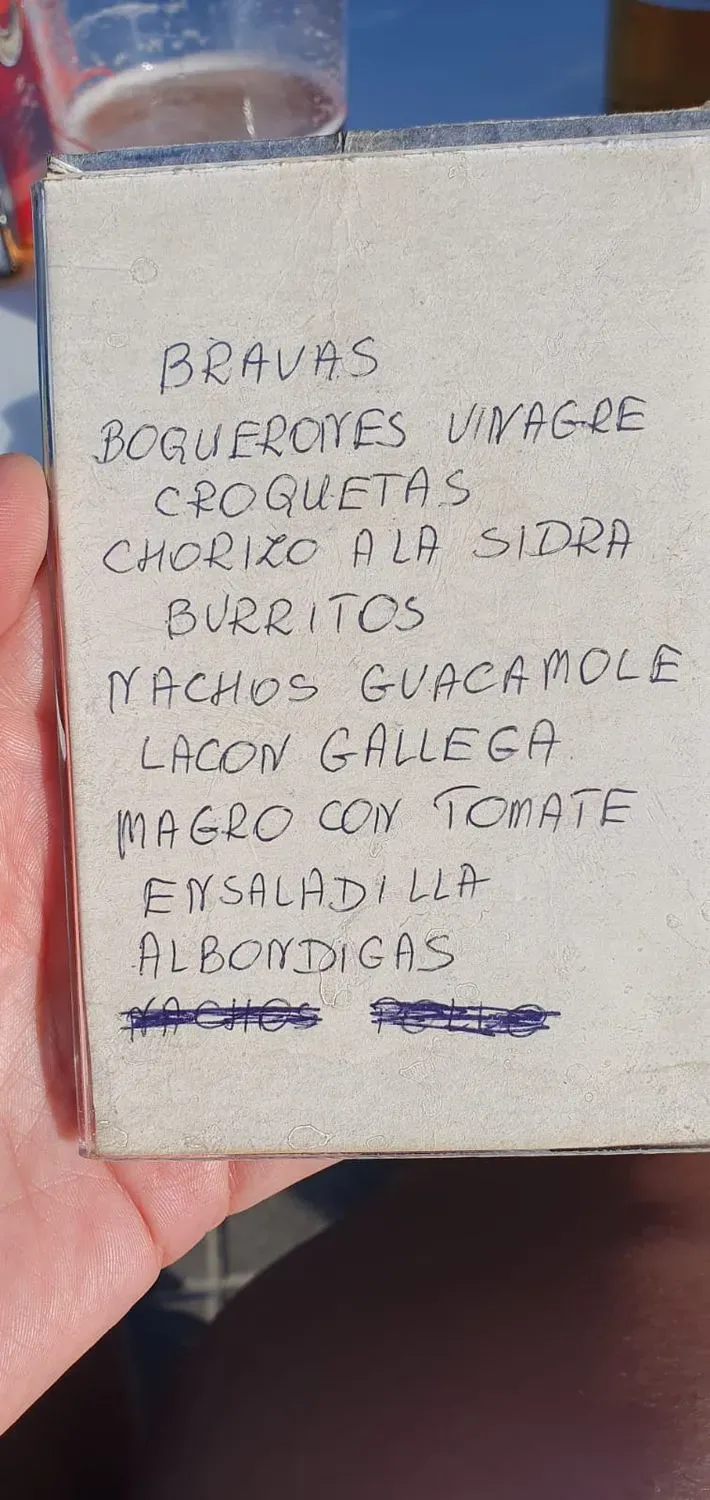 BRAVAS
BOQUERONES VINAGRE
CROQUETAS
CHORIZO A LA SIDRA
BURRITOS
NACHOS GUACAMOLE
LACON GALLEGA
MAGRO CON TOMATE
ENSALADILLA
ALBONDIGAS
NACHOS POLLO